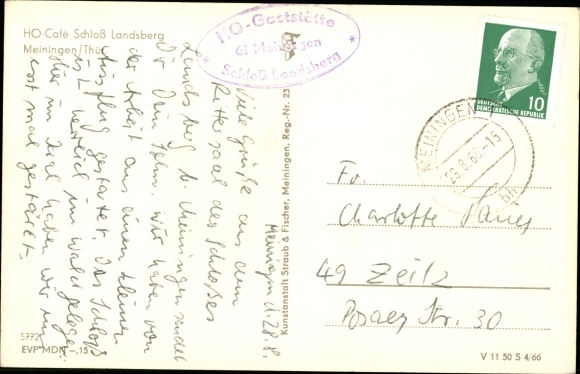 HO-Café Schloß Landsberg
Meiningen/Thür
HO-Gaststätte
61 Meiningen
Schloß Landsberg
DEUTSCHE
DEMOKRATISCHE REPUBLIK
10
MEININGEN
28.8.66-15
bh
Meiningen d. 28.8.
Viele Grüße aus dem
Rittersaal des Schloßes
Landsberg b. Meiningen sendet
Dir Dein Sohn. Wir haben von
der Arbeit aus einen kleinen
Ausflug gestartet. Das Schloß
ist herrlich im Wald gelegen.
Hier im Saal haben wir uns
erst mal gestärkt.
Kunstanstalt Straub & Fischer, Meiningen, Reg.-Nr. 23
Fr.
Charlotte
49 Zeitz
Posaer Str. 30
5772
EVP MDN -,15
V 11 50 S 4/66